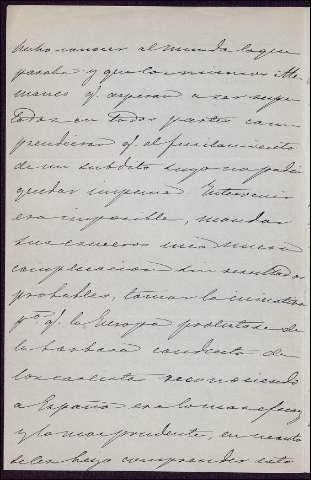 hecho conocer al mundo lo que
pasaba y que los mismos Ale-
manes q. aspiran a ser respe-
tados en todas partes com-
prendieran q. el fusilamiento
de un subdito suyo no podia
quedar impune. Intervenir
era imposible, mandar
sus cruceros una nueva
complicacion sin resultados
probables, tomar la iniciativa
pa. q. la Europa protestase de
la barbara conducta de
los carlistas reconociendo
a España era lo mas eficaz
y lo mas prudente, en cuanto
se les hizo comprender esto